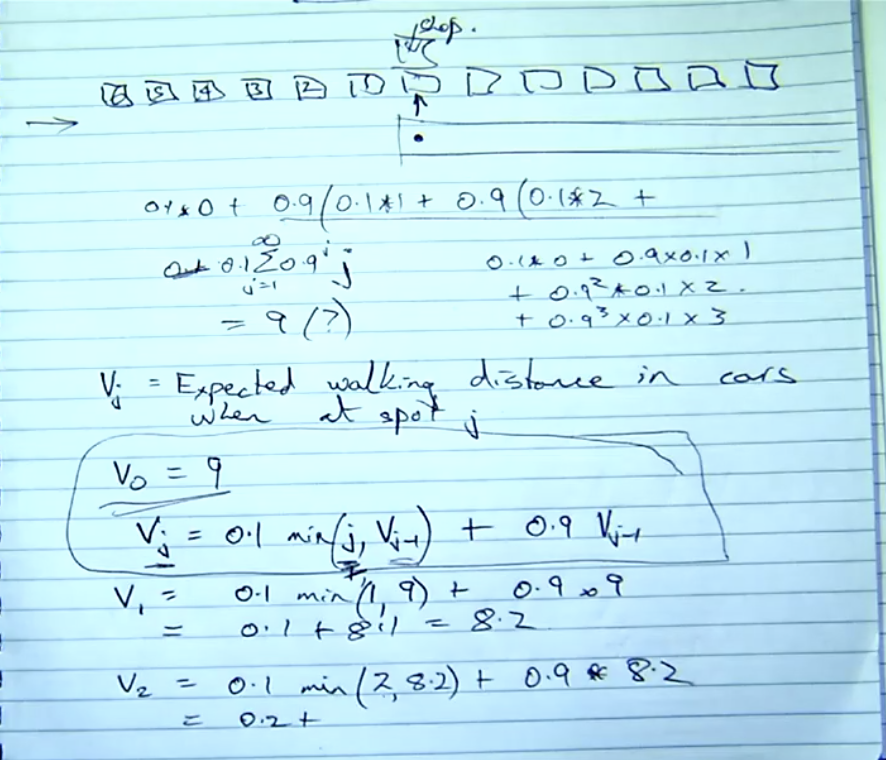 shop.
6 5 4 3 2 1
0.1*0 + 0.9(0.1*1 + 0.9(0.1*2 +
0.1 ∑_{j=1}^{∞} 0.9^j j
= 9 (?)
0.1*0 + 0.9×0.1×1
+ 0.9²*0.1×2.
+ 0.9³×0.1×3
V_j = Expected walking distance in cars
when at spot j
V_0 = 9
V_j = 0.1 min(j, V_{j-1}) + 0.9 V_{j-1}
V_1 = 0.1 min(1, 9) + 0.9 × 9
= 0.1 + 8.1 = 8.2
V_2 = 0.1 min(2, 8.2) + 0.9 * 8.2
= 0.2 +